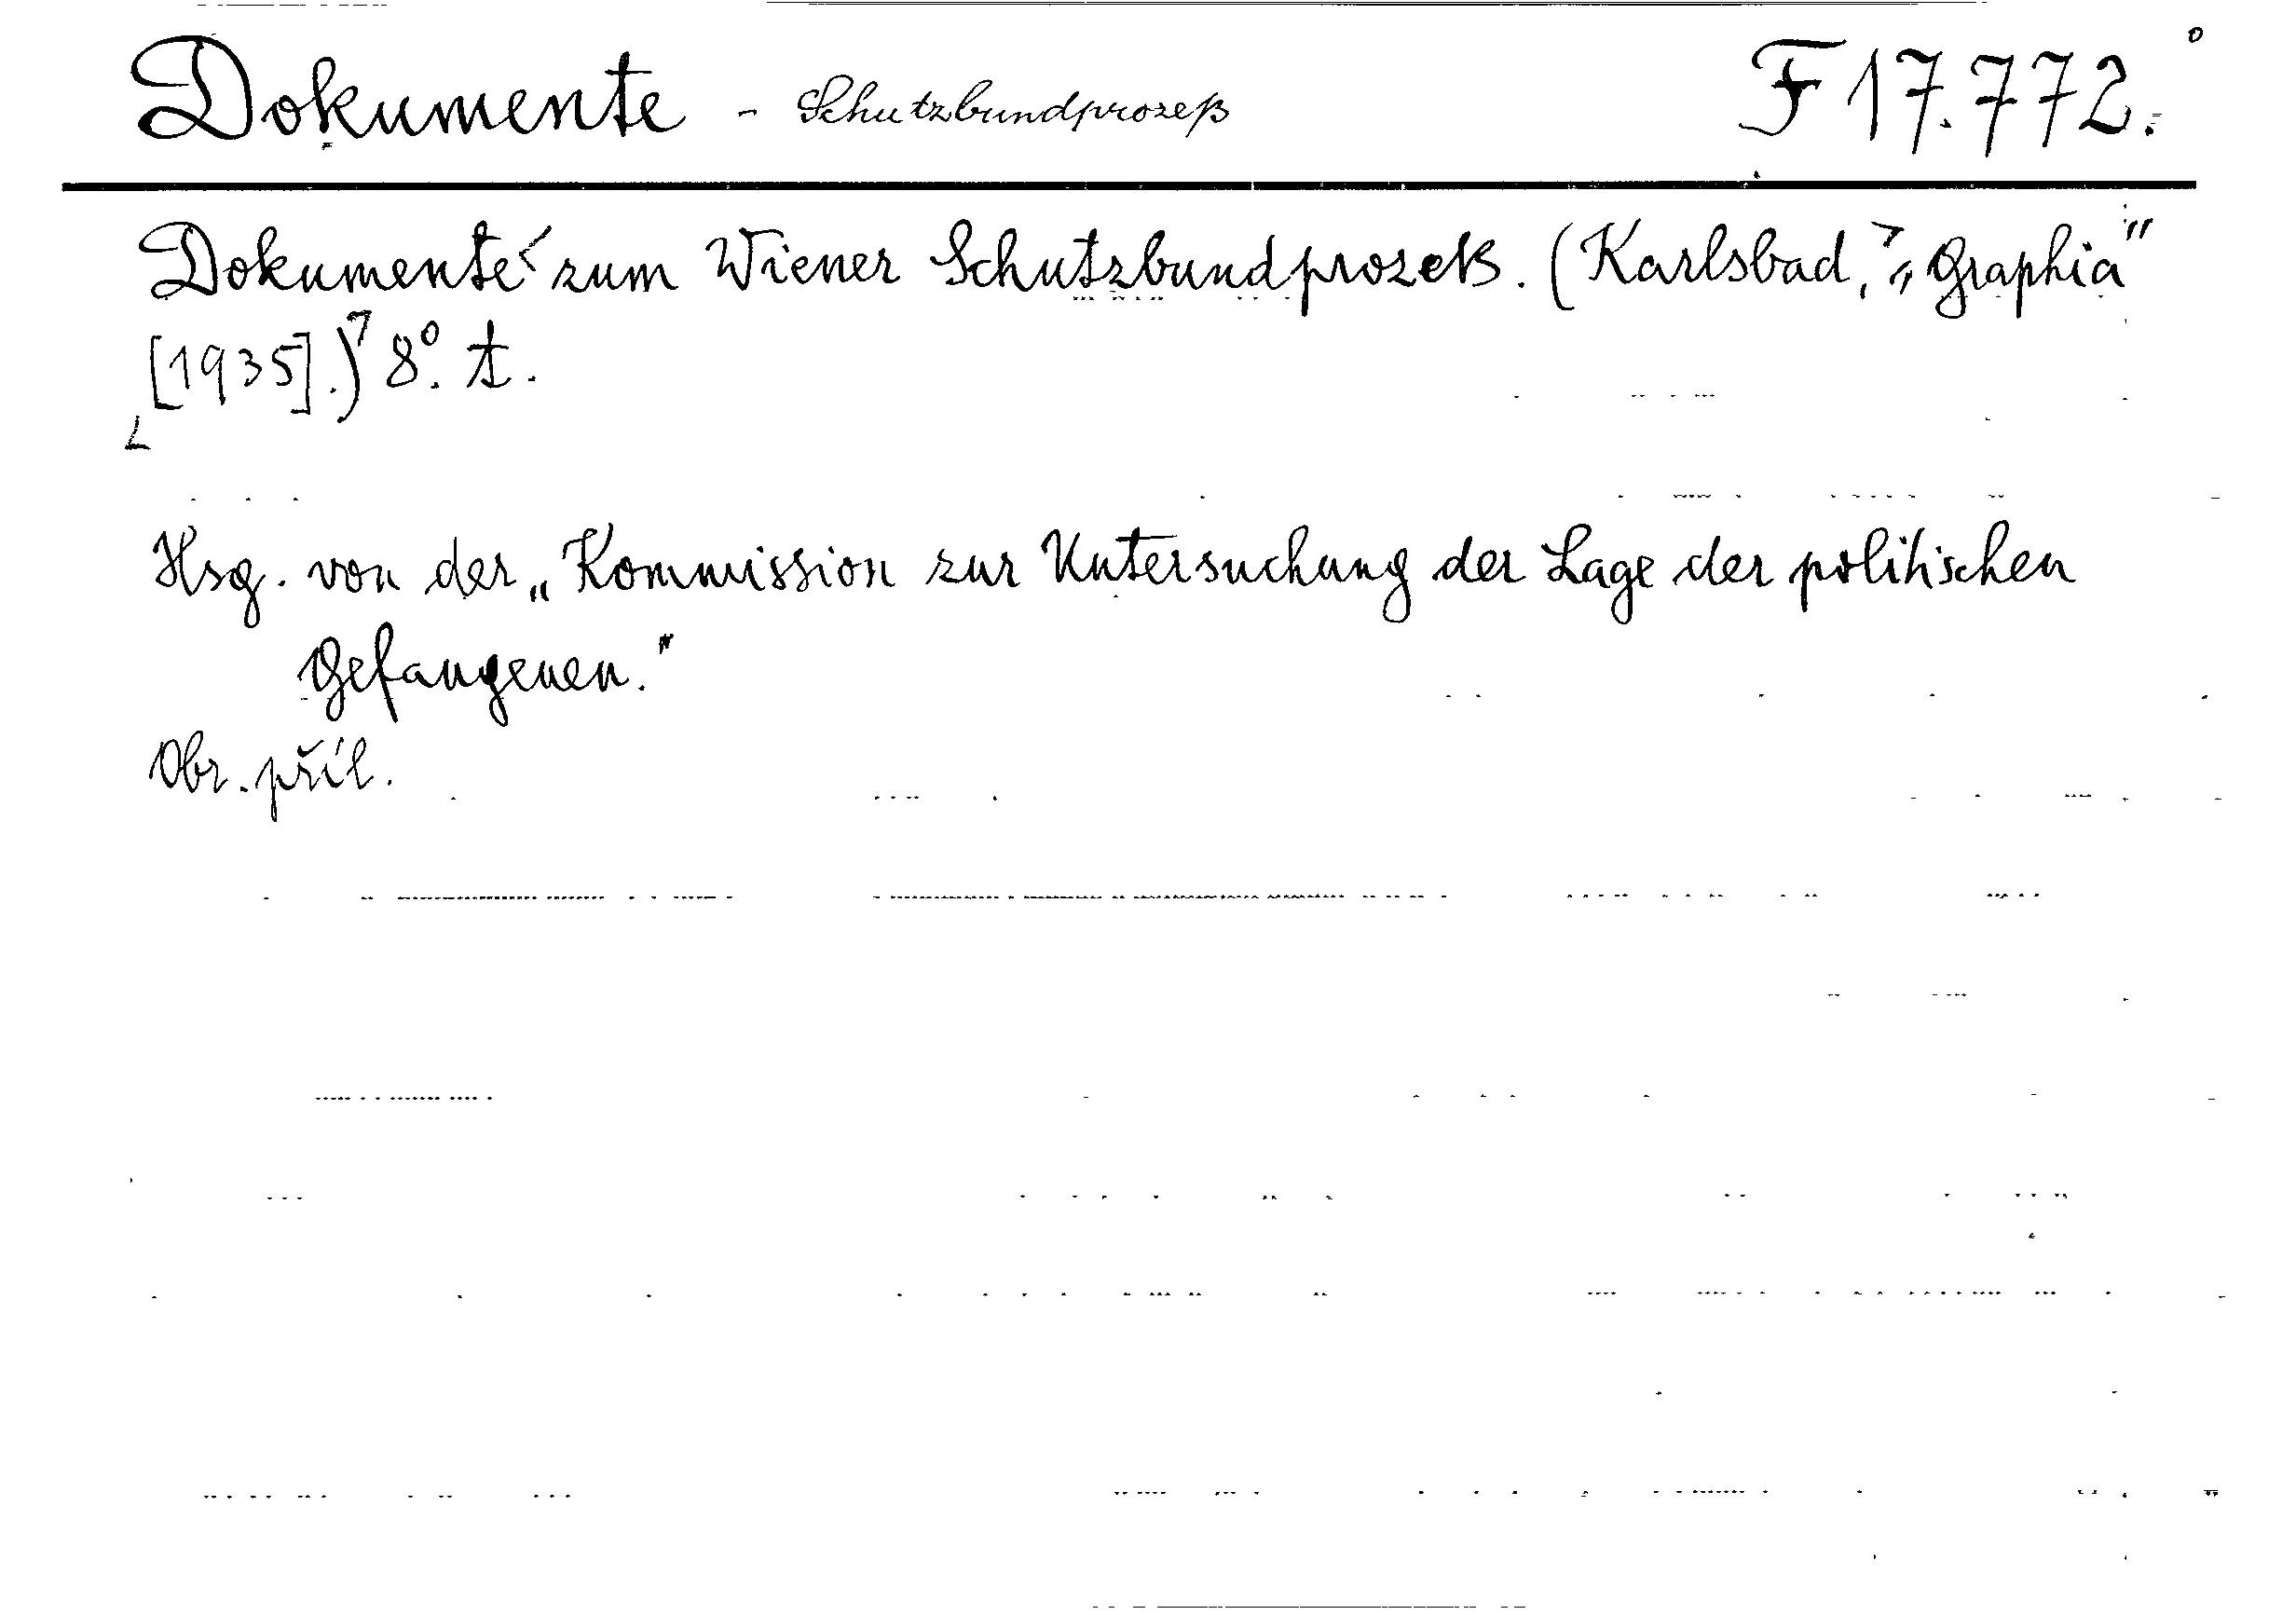 Dokumente - Schutzbundprozeß F 17.772.
Dokumente zum Wiener Schutzbundprozeß. (Karlsbad, „Graphia"
[1935].) 8°. t.
Hsg. von der „Kommission zur Untersuchung der Lage der politischen
Gefangenen."
Obr. příl.